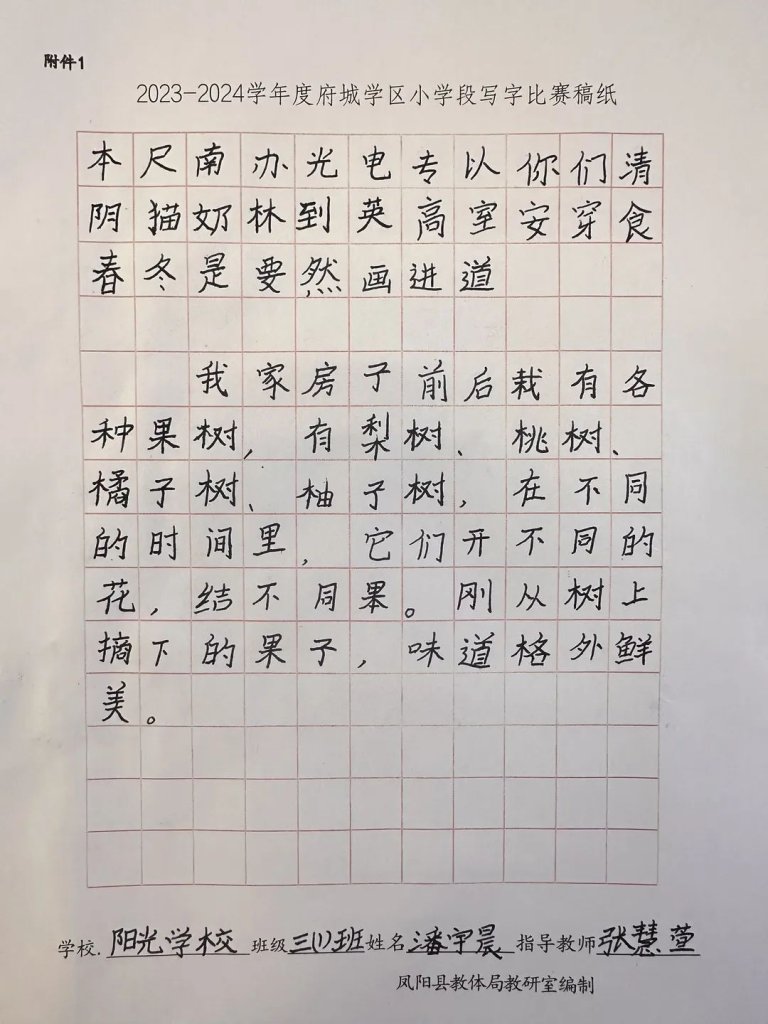 附件1
2023-2024学年度府城学区小学段写字比赛稿纸
本尺南办光电专以你们清
阴猫奶林到英高室安穿食
春冬是要然画进道
我家房子前后栽有各
种果树,有梨树、桃树、
橘子树、柚子树,在不同
的时间里,它们开不同的
花,结不同果。刚从树上
摘下的果子,味道格外鲜
美。
学校.阳光学校 班级三(1)班姓名潘宇晨 指导教师张慧萱
凤阳县教体局教研室编制